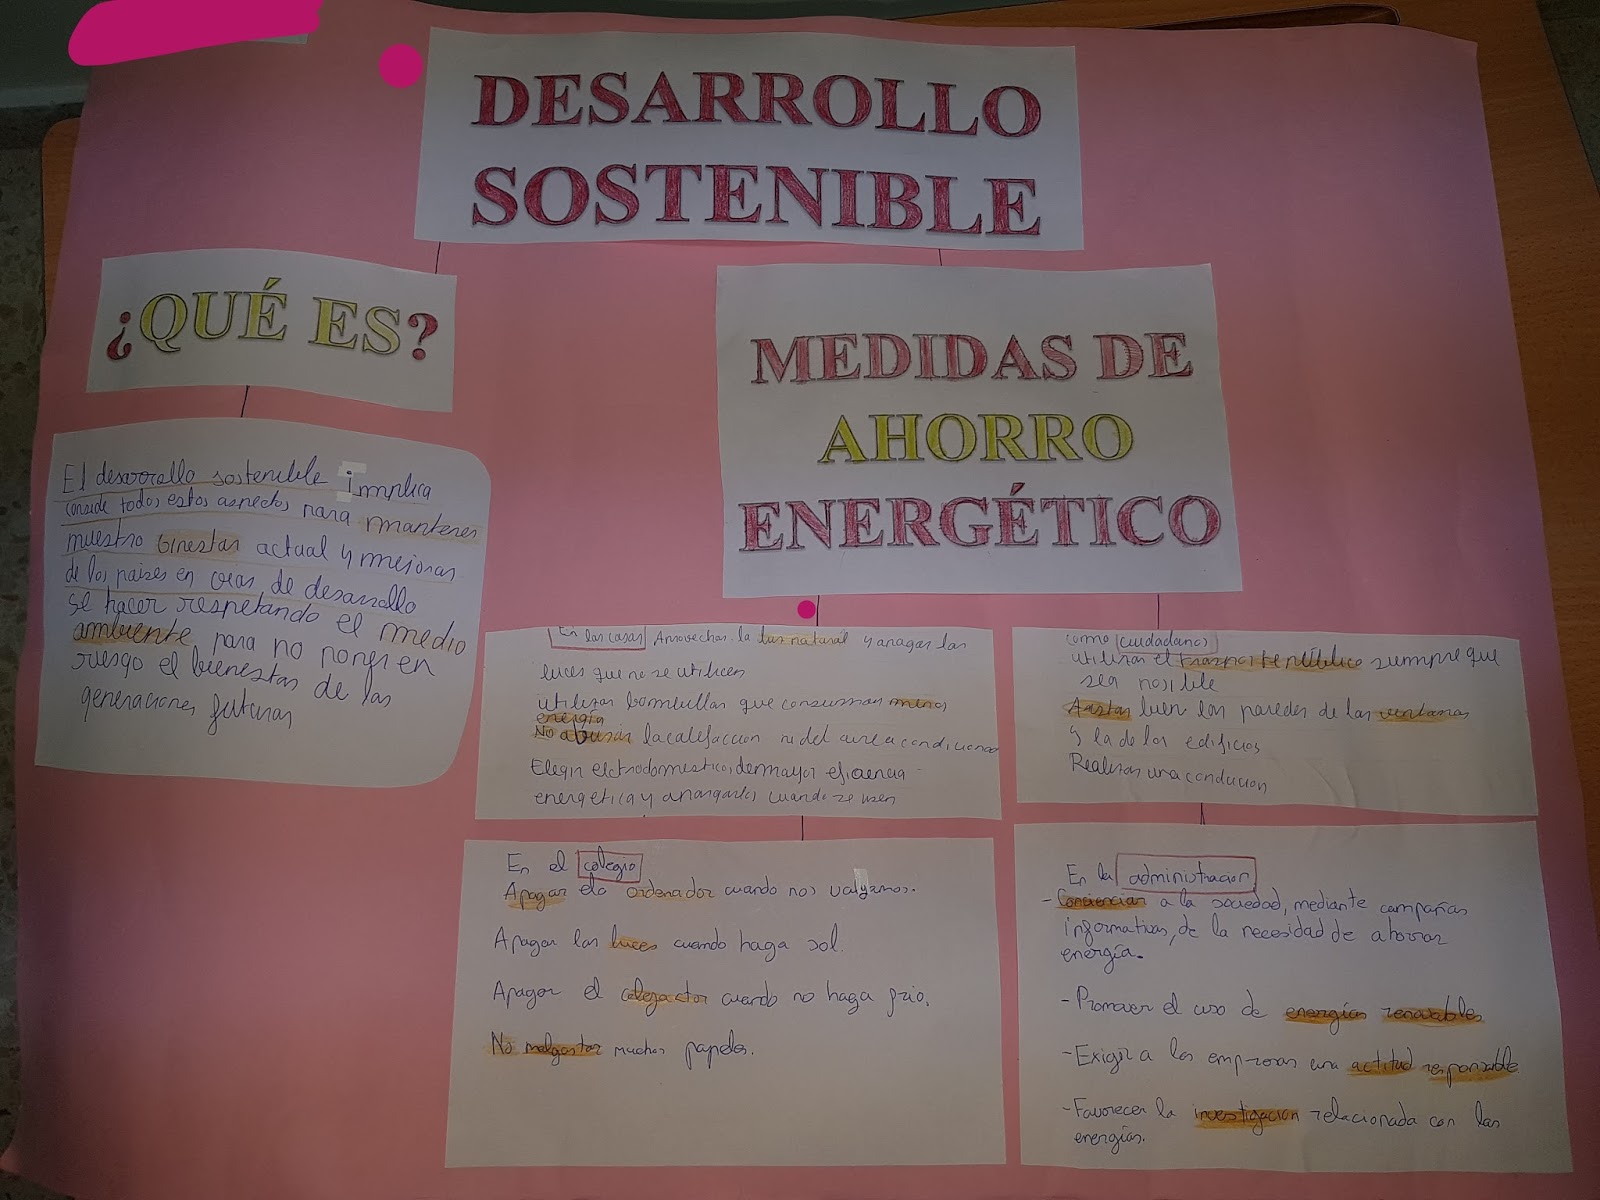 DESARROLLO
SOSTENIBLE
¿QUÉ ES?
El desarrollo sostenible implica
conside todos estos aspectos para mantener
nuestro binestar actual y mejorar
de los paises en vias de desarrollo
se hacer respetando el medio
ambiente para no poner en
riesgo el bienestar de las
generaciones futuras
MEDIDAS DE
AHORRO
ENERGÉTICO
En las casas Aprovechar la luz natural y apagar las
luces que no se utilicen
utilizar bombillas que consuman menos
energía
No abusar la calefaccion ni del aire acondicionado
Elegir electrodomestico, de mayor eficiencia
energetica y apagarlos cuando se usen
como ciudadanos
utilizar el trasporte público siempre que
sea posible
Aistar bien las paredes de las ventanas
y la de los edificios
Realizar una conducion
En el colegio
Apagar el ordenador cuando nos vallamos.
Apagar las luces cuando haga sol.
Apagar el calefactor cuando no haga frio.
No malgastar muchos papeles.
En la administracion
- Concienciar a la sociedad, mediante campañas
informativas, de la necesidad de ahorrar
energía.
- Promover el uso de energías renovables
- Exigir a las empresas una actitud responsable
- Favorecer la investigacion relacionada con las
energías.